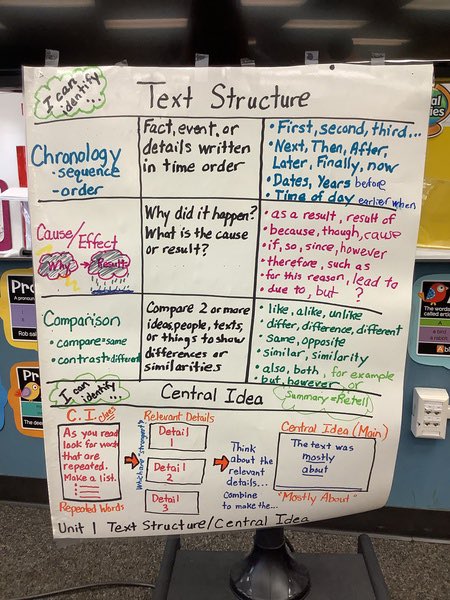 I can
identify...
Text Structure
Chronology
• sequence
- order
Fact, event, or
details written
in time order
• First, second, third...
• Next, Then, After,
Later, Finally, now
• Dates, Years before
• Time of day earlier when
Cause/
Effect
Why
Result
Why did it happen?
What is the cause
or result?
• as a result, result of
• because, though, cause
• if, so, since, however
• therefore, such as
• for this reason, lead to
• due to, but ?
Comparison
• compare=same
• contrast=different
Compare 2 or more
ideas, people, texts,
or things to show
differences or
similarities
• like, alike, unlike
differ, difference, different
same, opposite
• similar, similarity
• also, both, for example
• but, however, or
I can
identify...
Central Idea
Summary=Retell
C.I. clues
As you read
look for words
that are
repeated.
Make a list.
Repeated Words
Which are strongest?
Relevant Details
Detail
1
Detail
2
Detail
3
Think
about the
relevant
details...
Combine
to make the...
Central Idea (Main)
The text was
mostly
about
"Mostly About"
Unit 1 Text Structure/Central Idea
Pro
A pronoun
Rob sai
Pre
The words
called articles
A
a bird